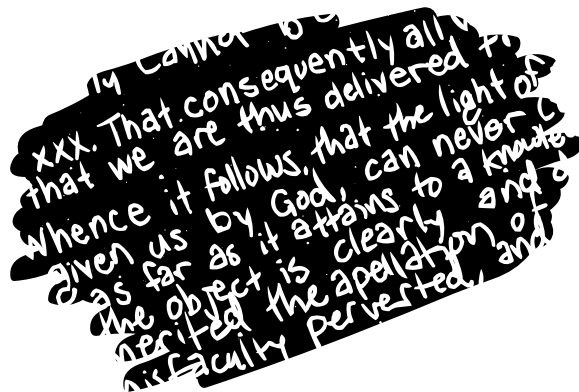 ly cannot be
xxx. That consequently all
that we are thus delivered
Whence it follows, that the light of
given us by God, can never
as far as it attains to a
the object is clearly and
merited the apellation of
his faculty perverted, and